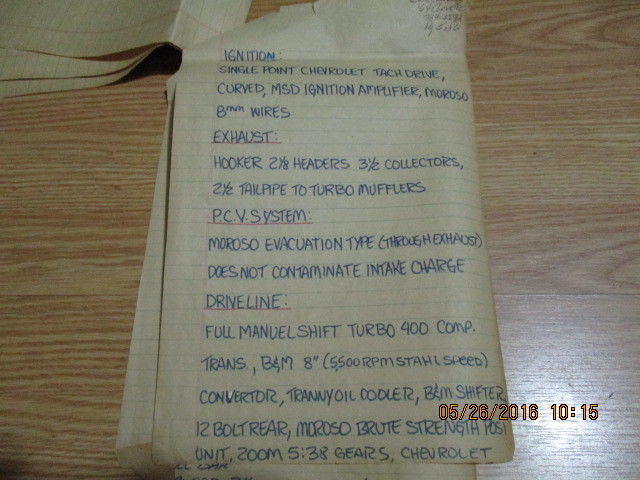 pg 5 of 6
IGNITION:
SINGLE POINT CHEVROLET TACH DRIVE,
CURVED, MSD IGNITION AMPLIFIER, MOROSO
8mm WIRES
EXHAUST:
HOOKER 2 1/8 HEADERS 3 1/2 COLLECTORS,
2 1/2 TAILPIPE TO TURBO MUFFLERS
P.C.V. SYSTEM:
MOROSO EVACUATION TYPE (THROUGH EXHAUST)
DOES NOT CONTAMINATE INTAKE CHARGE
DRIVELINE:
FULL MANUEL SHIFT TURBO 400 COMP.
TRANS., B&M 8" (5,500 RPM STAHL SPEED)
CONVERTOR, TRANNY OIL COOLER, B&M SHIFTER
12 BOLT REAR, MOROSO BRUTE STRENGTH POSI
UNIT, ZOOM 5:38 GEARS, CHEVROLET
05/26/2016 10:15